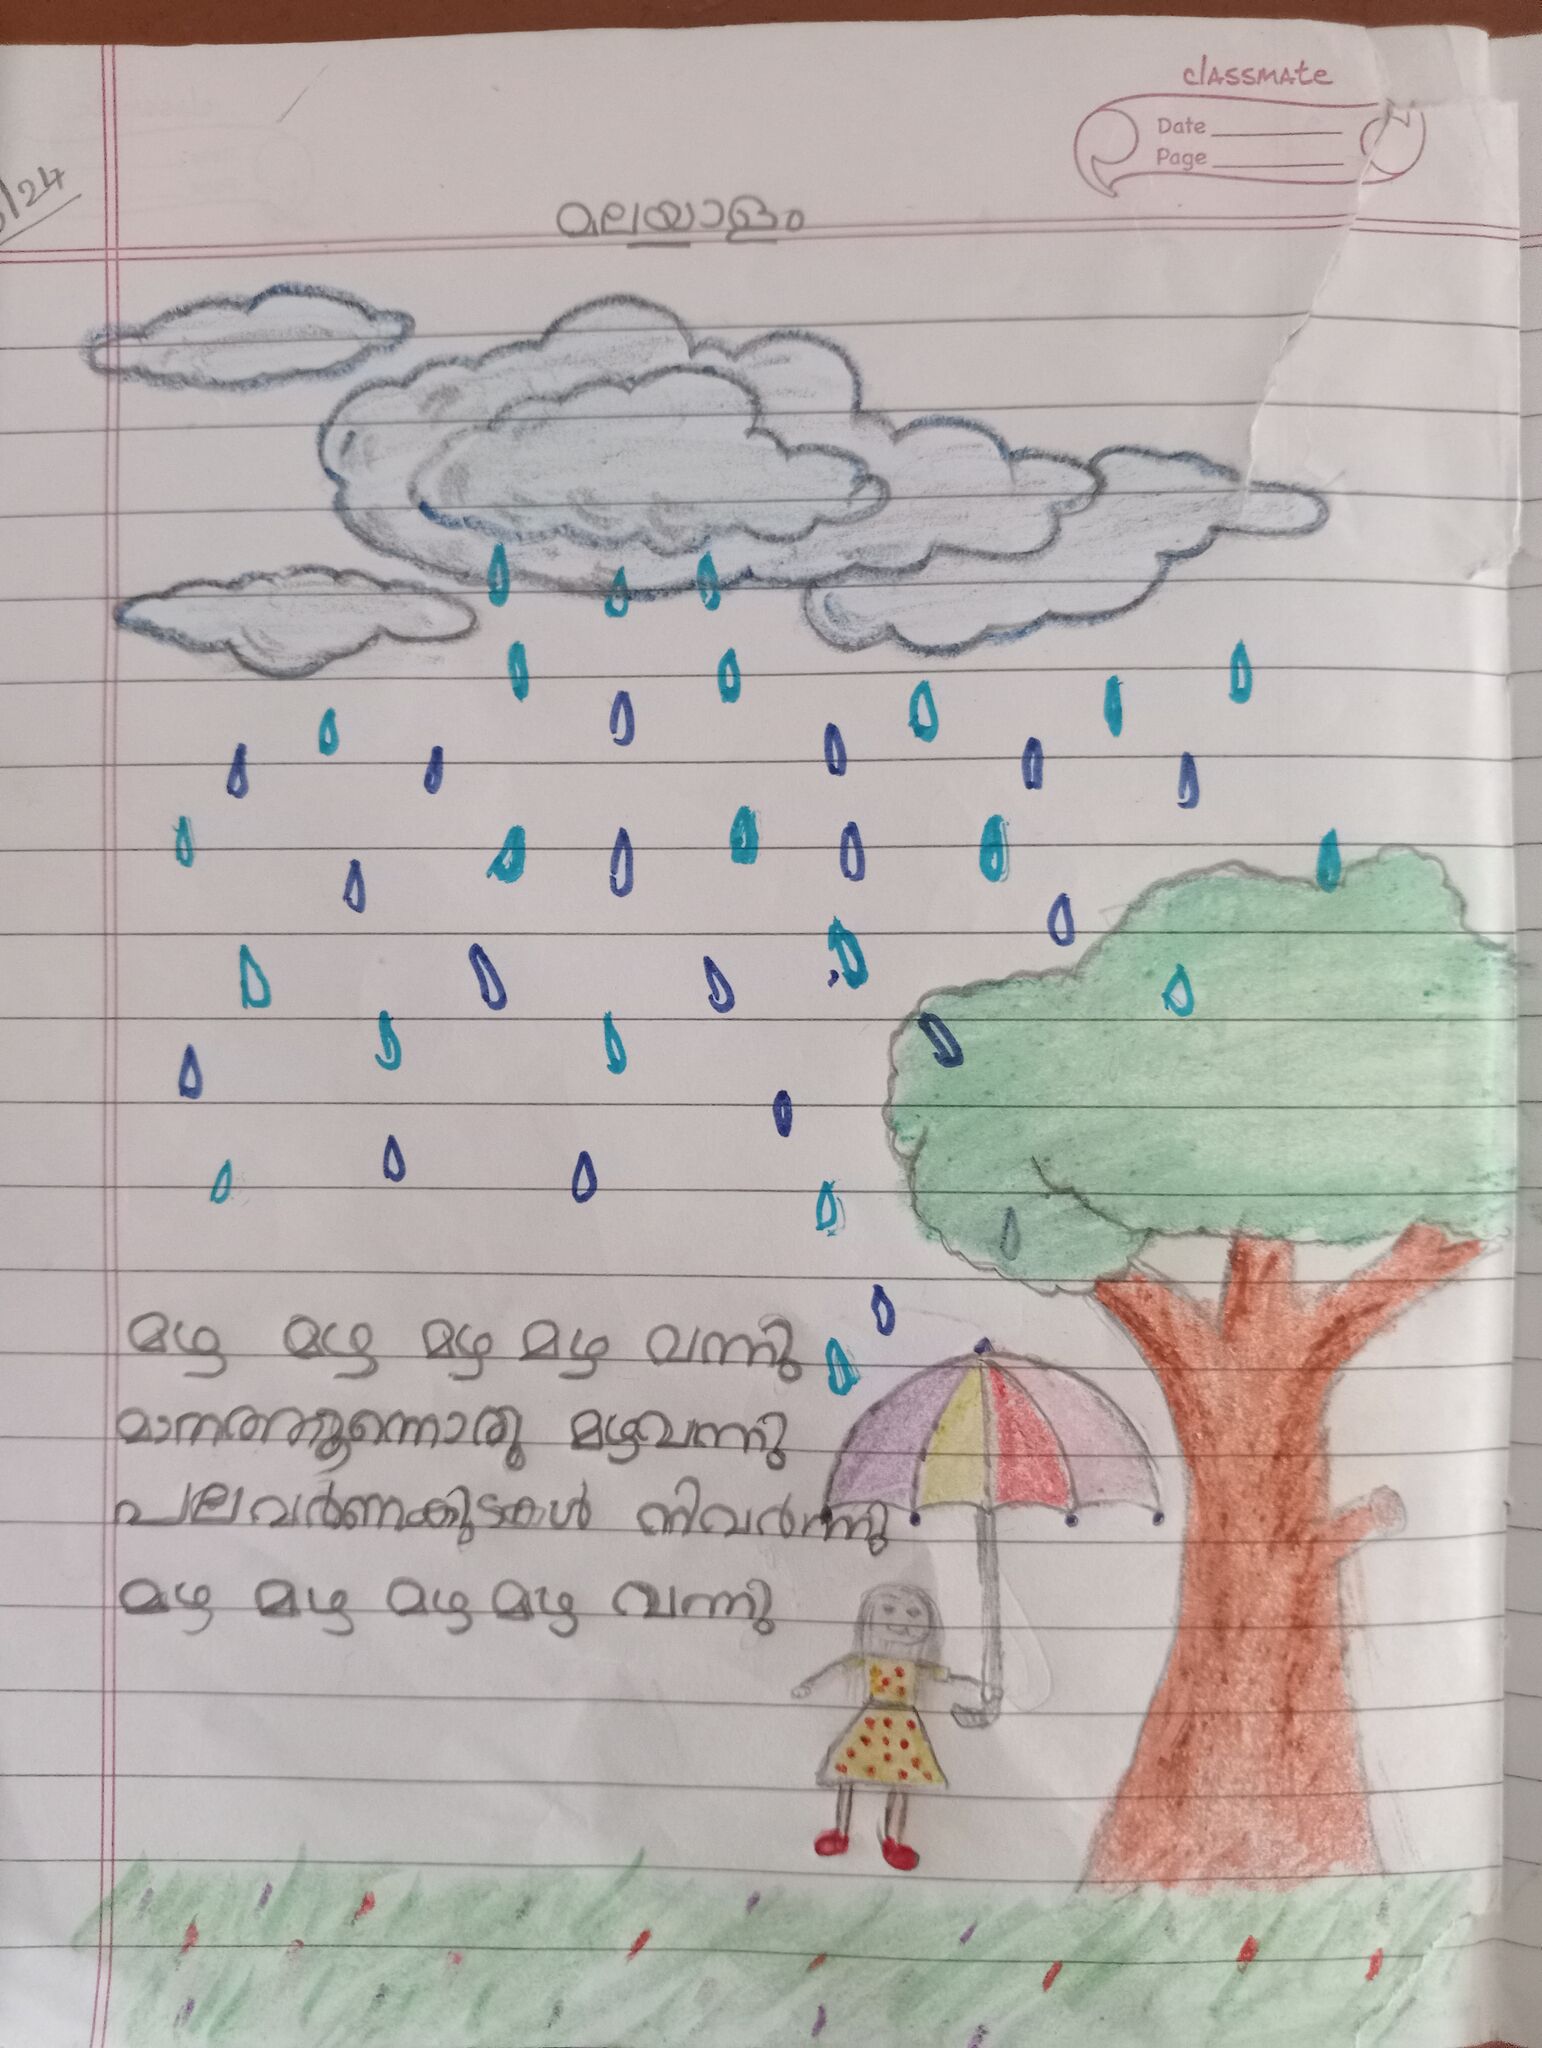 classmate
Date
Page
/24
മലയാളം
മഴ മഴ മഴ മഴ വന്നു
മാനത്തൂന്നൊരു മഴവന്നു
പലവർണക്കുടകൾ നിവർന്നു
മഴ മഴ മഴ മഴ വന്നു